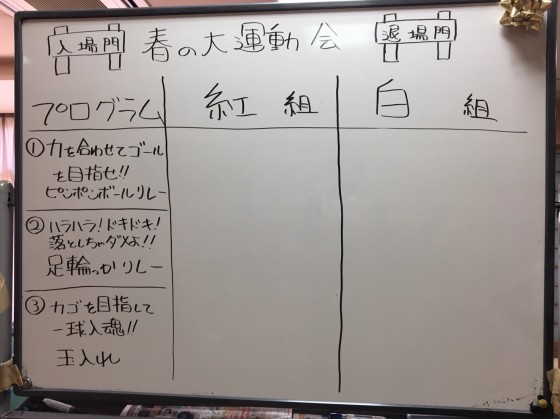 入場門 春の大運動会 退場門
プログラム 紅組 白組
①力を合わせてゴール
を目指せ!!
ピンポンボールリレー
②ハラハラ!ドキドキ!
落としちゃダメよ!!
足輪っかリレー
③カゴを目指して
一球入魂!!
玉入れ